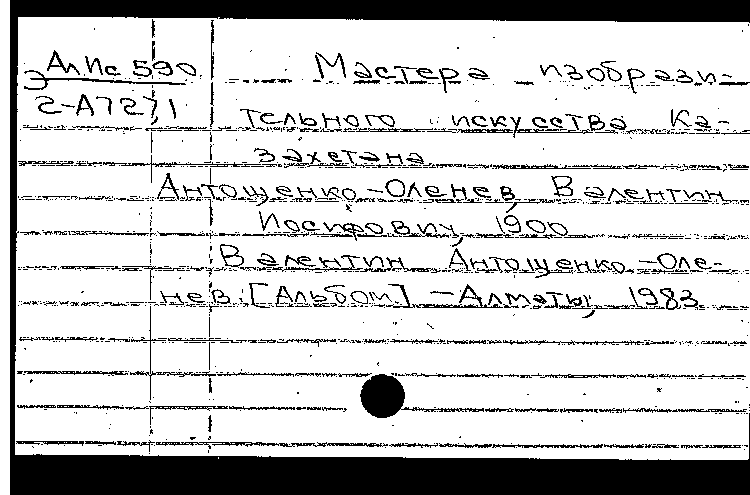 АлИс 590 Мастера изобрази-
Э 2-А727,1 тельного искусства Ка-
захстана
Антощенко-Оленев, Валентин
Иосифович, 1900
Валентин Антощенко-Оле-
нев: [Альбом] – Алматы, 1983